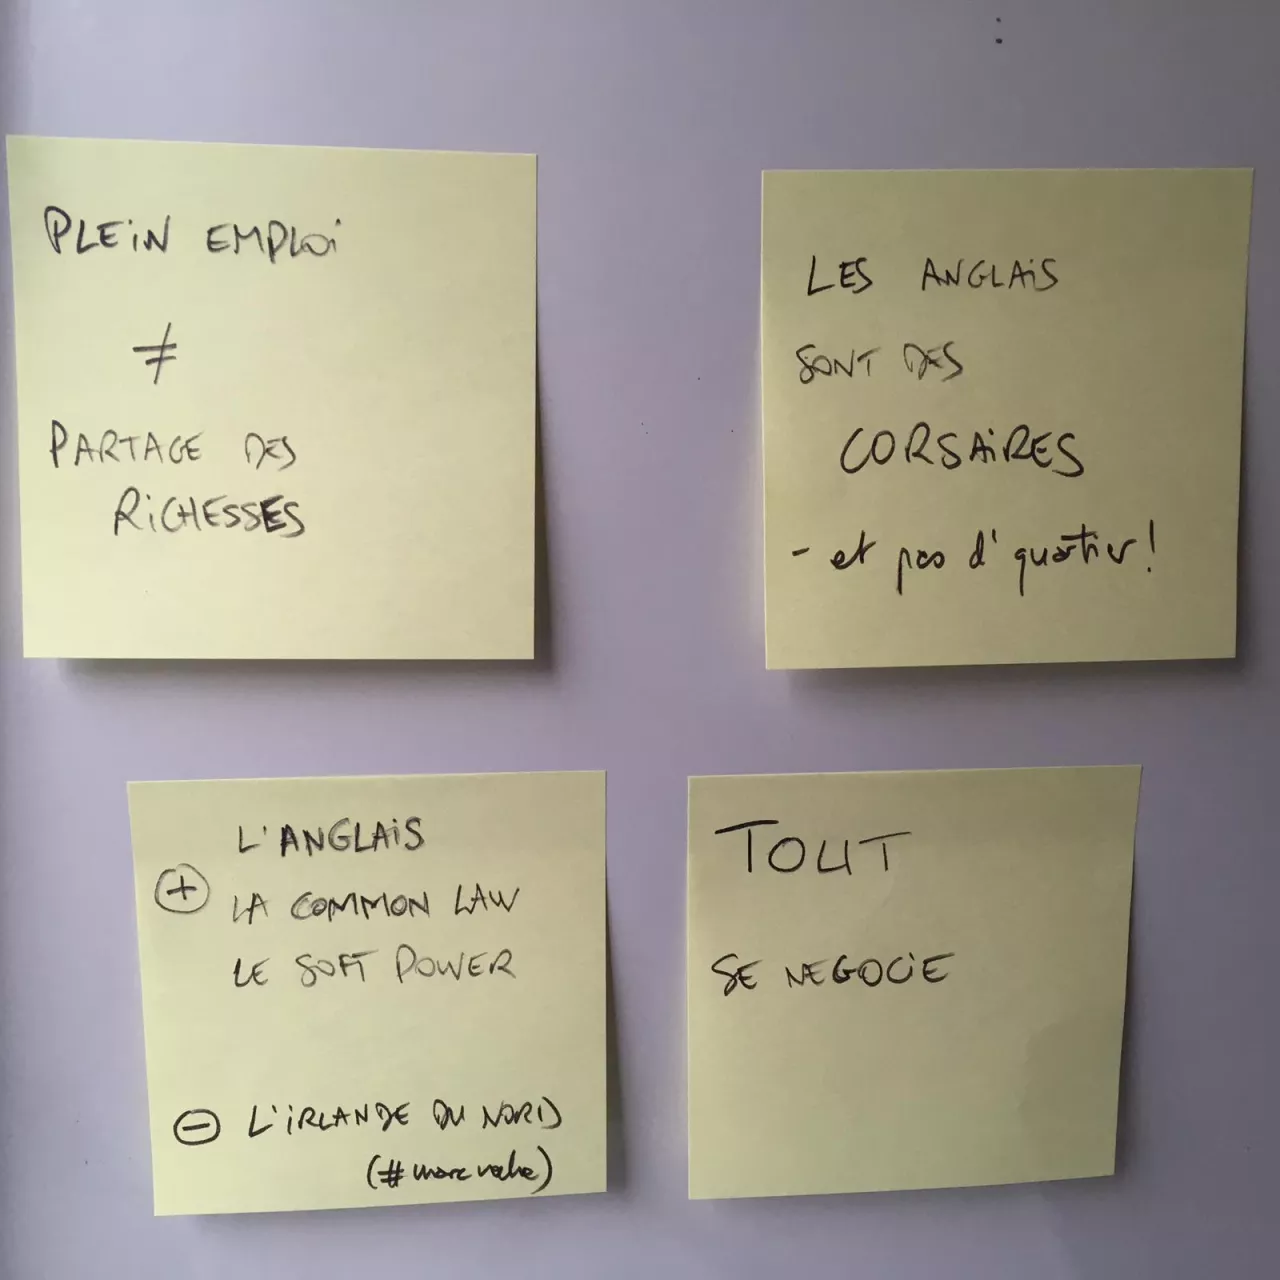 PLEIN EMPLOI
≠
PARTAGE DES
RICHESSES
LES ANGLAIS
SONT DES
CORSAIRES
- et pas d'quartier!
L'ANGLAIS
⊕ LA COMMON LAW
LE SOFT POWER
⊖ L'IRLANDE DU NORD
(#marcroche)
TOUT
SE NEGOCIE